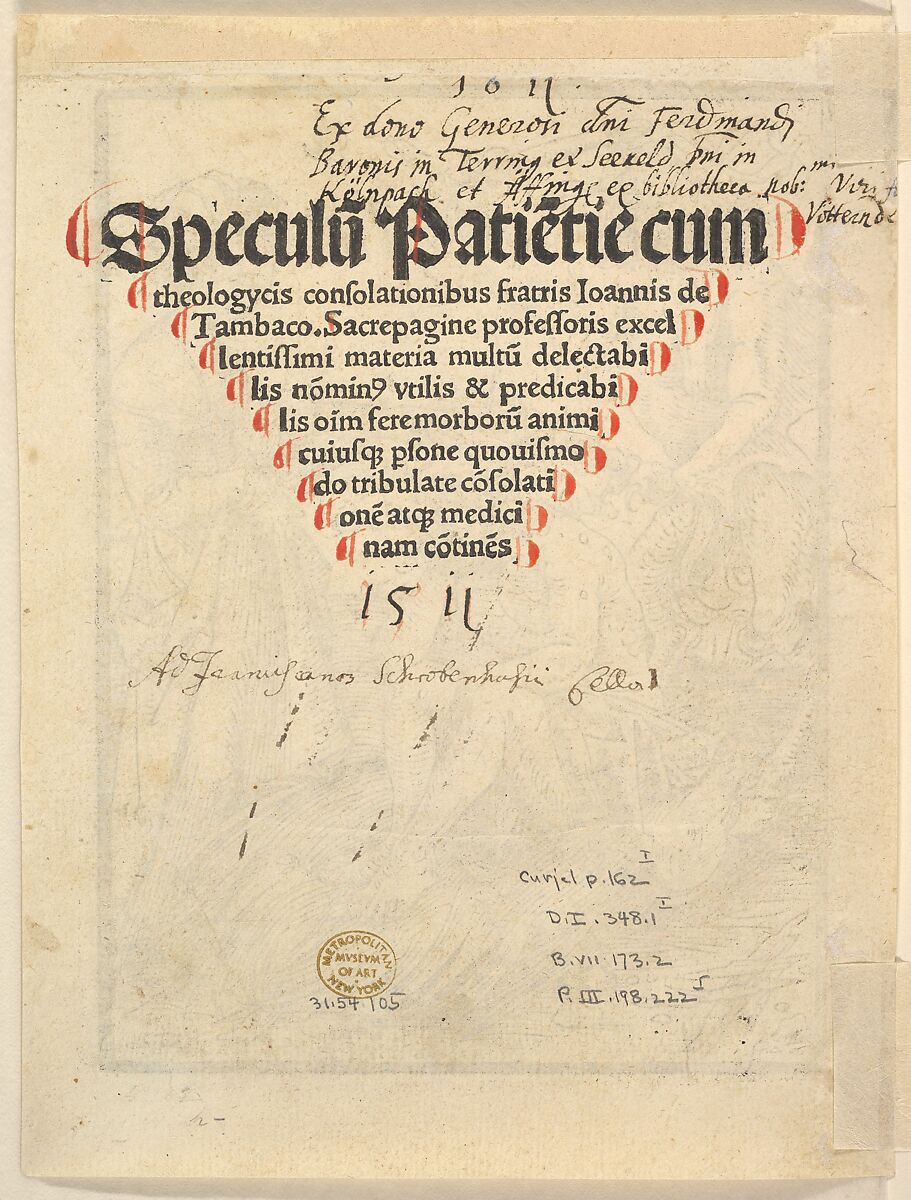 1611
Ex dono Generosi dñi Ferdinandi
Baronis in Terring et Seeveld pñi in
et Affing ex bibliotheca nob:
Speculũ Patiẽtie cum
theologycis conſolationibus fratris Ioannis de
Tambaco. Sacrepagine profeſſoris excel
lentiſſimi materia multũ delectabi
lis nõminꝰ vtilis & predicabi
lis oĩm feremorborũ animi
cuiuſqꝫ ꝑſone quouiſmo
do tribulate cõſolati
onẽ atqꝫ medici
nam cõtinẽs
1511
Ad
Curjel p. 162 I
D.I. 348.1 I
B.VII.173.2
P.III.198.222
METROPOLITAN
MVSEVM
OF ART
NEW YORK
31.54.105